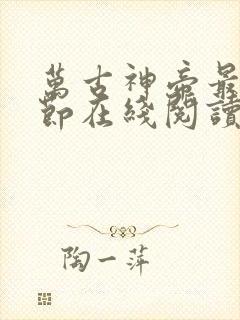 萬古神帝最
節在綫閱讀
陶一萍